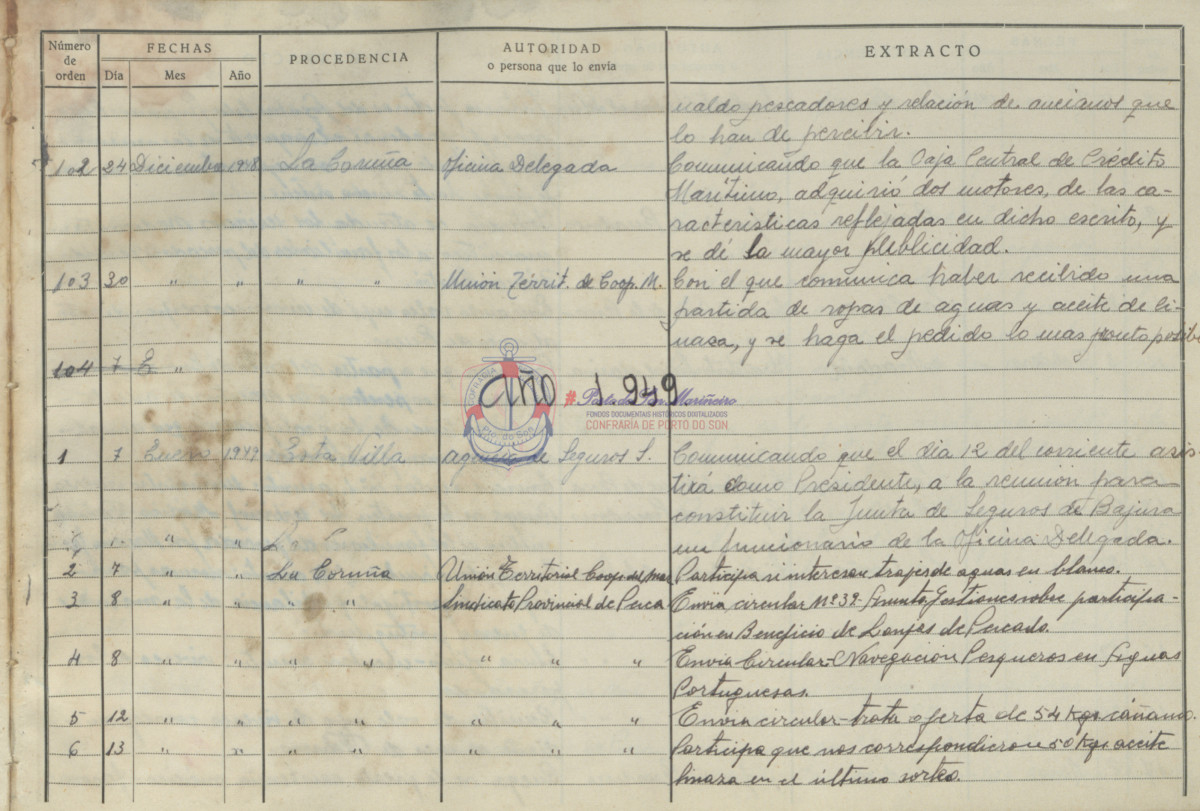 Número de orden
FECHAS
Día Mes Año
PROCEDENCIA
AUTORIDAD
o persona que lo envía
EXTRACTO
pescadores y relación de ancianos que
lo han de percibir.
102 24 Diciembre 1948 La Coruña Oficina Delegada Comunicando que la Caja Central de Crédito
Marítimo, adquirió dos motores, de las ca-
racteristicas reflejadas en dicho escrito, y
se dé la mayor publicidad.
103 30 " " " " Unión Territ. de Coop. M. Con el que comunica haber recibido una
partida de ropas de aguas y aceite de li-
naza, y se haga el pedido lo mas pronto posible
104 7 E "
Año 1949
COFRADIA
Pto. do Son
# Porto do Son Mariñeiro
FONDOS DOCUMENTAIS HISTÓRICOS DIXITALIZADOS
CONFRARÍA DE PORTO DO SON
1 7 Enero 1949 Esta Villa Agencia de Seguros S. Comunicando que el día 12 del corriente asis-
tirá como Presidente, a la reunión para
constituir la Junta de Seguros de Bajura
" " un funcionario de la Oficina Delegada.
2 7 " " La Coruña Unión Territorial Coop. del Mar Participa si interesan trajes de aguas en blanco.
3 8 " " " " Sindicato Provincial de Pesca Envia circular Nº 39 Gestiones sobre participa-
ción en Beneficio de Lonjas de Pescado.
4 8 " " " " " " " Envia Circular-Navegación Pesqueros en Aguas
Portuguesas.
5 12 " " " " " " " Envia circular-trata oferta de 54 kgs cáñamo.
6 13 " " " " " " " Participa que nos correspondieron 50 kgs aceite
linaza en el último sorteo.